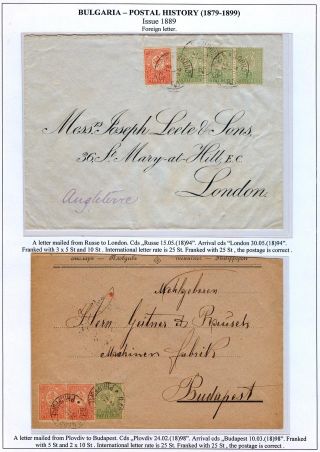 BULGARIA – POSTAL HISTORY (1879-1899)
Issue 1889
Foreign letter.
Mess.rs Joseph Leete & Sons,
36, St. Mary-at-Hill, E.C.
London.
Angleterre
A letter mailed from Russe to London. Cds „Russe 15.05.(18)94". Arrival cds "London 30.05.(18)94".
Franked with 3 x 5 St and 10 St . International letter rate is 25 St. Franked with 25 St , the postage is correct .
Wohlgeboren
Herrn
&
Maschinen Fabrik
Budapest
A letter mailed from Plovdiv to Budapest. Cds „Plovdiv 24.02.(18)98". Arrival cds „Budapest 10.03.(18)98". Franked
with 5 St and 2 x 10 St . International letter rate is 25 St. Franked with 25 St , the postage is correct .